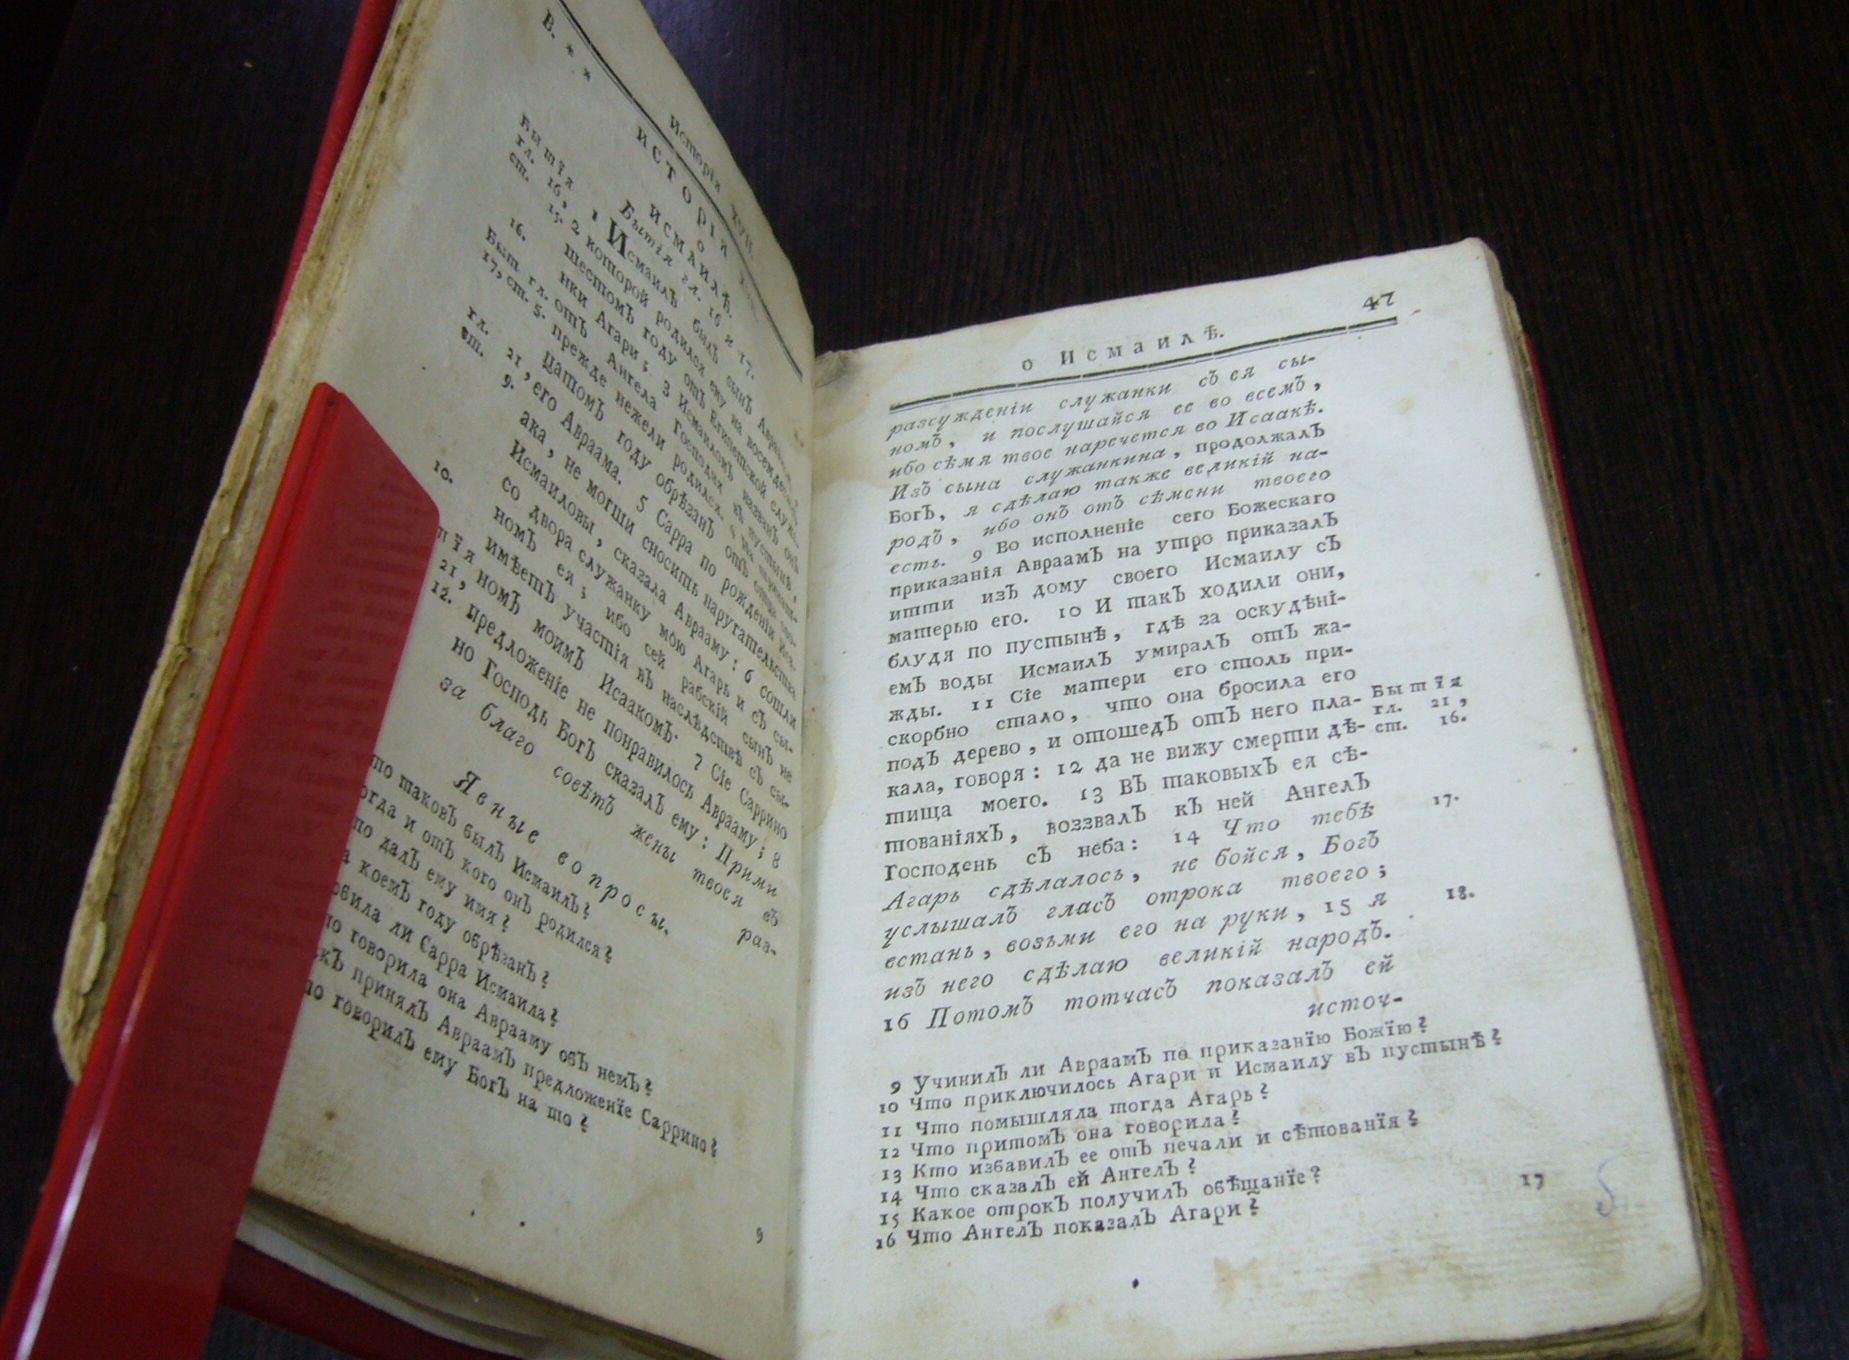 В. * *
Исторія XVII.
ИСТОРІЯ
о
ИСМАИЛѢ.
Бытія гл. 16 и 17.
Бытїя
гл. 16,
ст. 15.
16.
Быт. гл.
17, ст. 5.
гл. 21,
ст. 9.
10.
21,
12.
1 Исмаилъ былъ сынъ
2 которой родился ему на восемдесять
шестомъ году отъ Египетской служа-
нки Агари; 3 Исмаиломъ названъ онъ
отъ Ангела Господня въ пустынѣ,
прежде нежели родился. 4 На
цатомъ году обрѣзанъ отъ отца
его Авраама. 5 Сарра по рожденіи Иса-
ака, не могши сносить наругательства
Исмаиловы, сказала Аврааму: 6 сошли
со двора служанку мою Агарь и съ сы-
номъ ея; ибо сей рабскій сынъ не
имѣетъ участія въ наслѣдствѣ съ сы-
номъ моимъ Исаакомъ. 7 Сіе Саррино
предложеніе не понравилось Аврааму; 8
но Господь Богъ сказалъ ему: Прими
за благо совѣтъ жены твоея въ
раз-
Явные вопросы.
таковъ былъ Исмаилъ?
и отъ кого онъ родился?
далъ ему имя?
коемъ году обрѣзанъ?
ли Сарра Исмаила?
говорила она Аврааму объ немъ?
принялъ Авраамъ предложенїе Саррино?
говорилъ ему Богъ на то?
9
о Исмаилѣ.
47
разсужденіи служанки съ ея сы-
номъ, и послушайся ее во всемъ,
ибо сѣмя твое наречется во Исаакѣ.
Изъ сына служанкина, продолжалъ
Богъ, я сдѣлаю также великій на-
родъ, ибо онъ отъ сѣмени твоего
есть. 9 Во исполненіе сего Божескаго
приказанія Авраамъ на утро приказалъ
итти изъ дому своего Исмаилу съ
матерью его. 10 И такъ ходили они,
блудя по пустынѣ, гдѣ за оскудѣні-
емъ воды Исмаилъ умиралъ отъ жа-
жды. 11 Сіе матери его столь при-
скорбно стало, что она бросила его
подъ дерево, и отошедъ отъ него пла-
кала, говоря: 12 да не вижу смерти дѣ-
тища моего. 13 Въ таковыхъ ея сѣ-
тованіяхъ, воззвалъ къ ней Ангелъ
Господень съ неба: 14 Что тебѣ
Агарь сдѣлалось, не бойся, Богъ
услышалъ гласъ отрока твоего;
встань, возьми его на руки, 15 я
изъ него сдѣлаю великій народъ.
16 Потомъ тотчасъ показалъ ей
источ-
Бытїя
гл. 21,
ст. 16.
17.
18.
9 Учинилъ ли Авраамъ по приказанїю Божїю?
10 Что приключилось Агари и Исмаилу въ пустынѣ?
11 Что помышляла тогда Агарь?
12 Что притомъ она говорила?
13 Кто избавилъ ее отъ печали и сѣтованїя?
14 Что сказалъ ей Ангелъ?
15 Какое отрокъ получилъ обѣщанїе?
16 Что Ангелъ показалъ Агари?
17